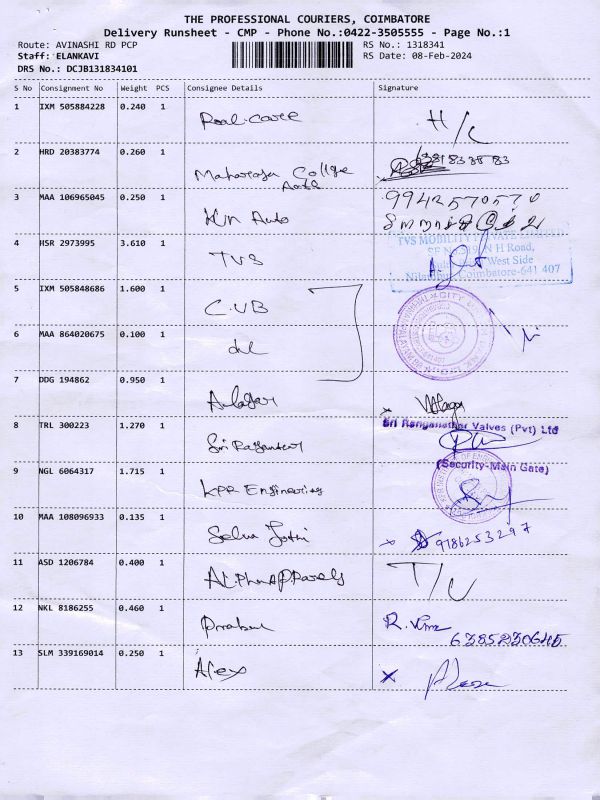 THE PROFESSIONAL COURIERS, COIMBATORE
Delivery Runsheet - CMP - Phone No.:0422-3505555 - Page No.:1
Route: AVINASHI RD PCP
RS No.: 1318341
Staff: ELANKAVI
RS Date: 08-Feb-2024
DRS No.: DCJB131834101
S No Consignment No Weight PCS Consignee Details Signature
1 IXM 505884228 0.240 1 Real care H/C
2 HRD 20383774 0.260 1 Maharaja College
3 MAA 106965045 0.250 1 Auto 9942570570
4 HSR 2973995 3.610 1 TVS
TVS MOBILITY PRIVATE LIMITED
N H Road,
West Side
Coimbatore-641 407
5 IXM 505848686 1.600 1 C.UB
6 MAA 864020675 0.100 1
7 DDG 194862 0.950 1
8 TRL 300223 1.270 1 Sri
Sri Ranganathar Valves (Pvt) Ltd
(Security-Main Gate)
9 NGL 6064317 1.715 1 KPR Engineering
10 MAA 108096933 0.135 1 Selva Jothi 9186253297
11 ASD 1206784 0.400 1 T/U
12 NKL 8186255 0.460 1 Prabu R.
13 SLM 339169014 0.250 1 Alex X